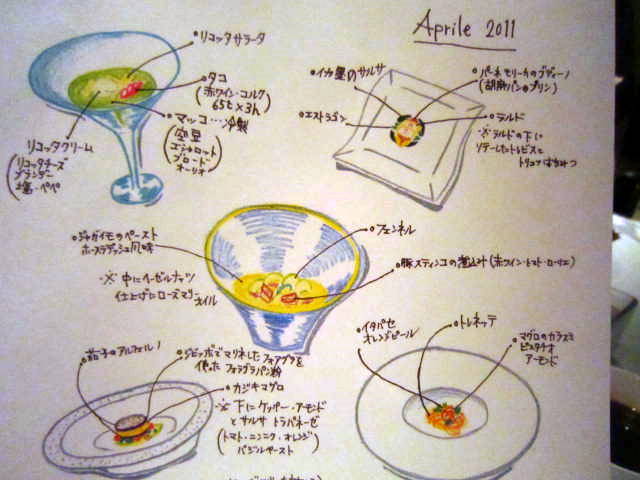 Aprile 2011
リコッタサラータ
タコ
(赤ワイン・コルク
65℃×3h)
マッコ…冷製
(空豆
エシャロット
ブロード
オーリオ)
リコッタクリーム
(リコッタチーズ
ブランデー
塩・ペペ)
イカ墨のサルサ
エストラゴン
パーネ モリーカのブディーノ
(胡麻パンのプリン)
ラルド
※ラルドの下に
ソテーした
トリュフはちみつ
ジャガイモのペースト
ホースラディッシュ風味
※中にヘーゼルナッツ
仕上げにローズマリー
オイル
フェンネル
豚スティンコの煮込み(赤ワイン・トマト・ローリエ)
茄子のアルフォルノ
ジビッボでマリネしたフォアグラを
使った フォアグラパン粉
カジキマグロ
※下にケッパー・アーモンド
とサルサ トラパネーゼ
(トマト・ニンニク・オレンジ
バジルペースト)
イタパセ
オレンジピール
トレネッテ
マグロのカラスミ
ピスタチオ
アーモンド